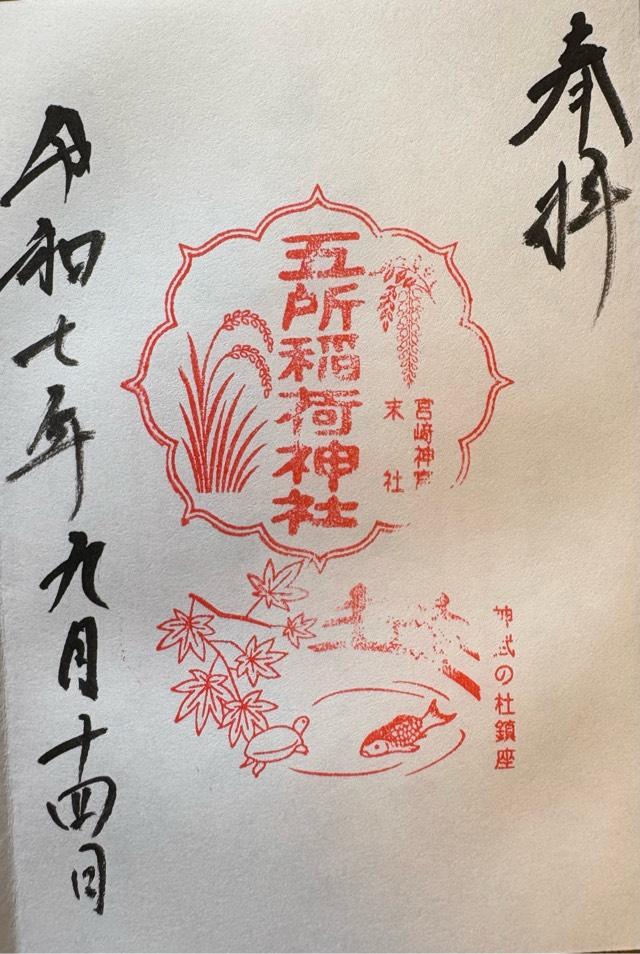 奉拝
宮崎神宮
末社
五所稲荷神社
神武の杜鎮座
令和七年九月十四日